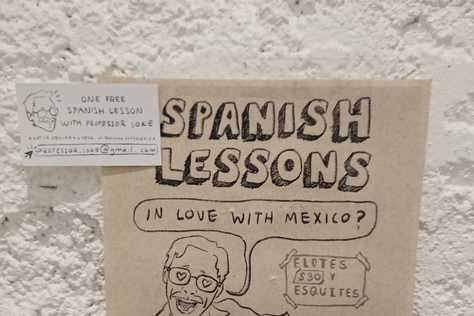 ONE FREE
SPANISH LESSON
WITH PROFESSOR JOSÉ
SPANISH
LESSONS
IN LOVE WITH MEXICO?
ELOTES
$30 Y
ESQUITES